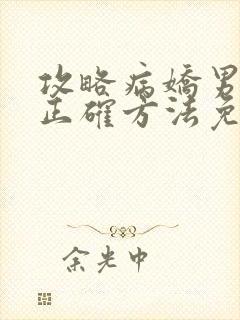 攻略病嬌男
正確方法免
余光中